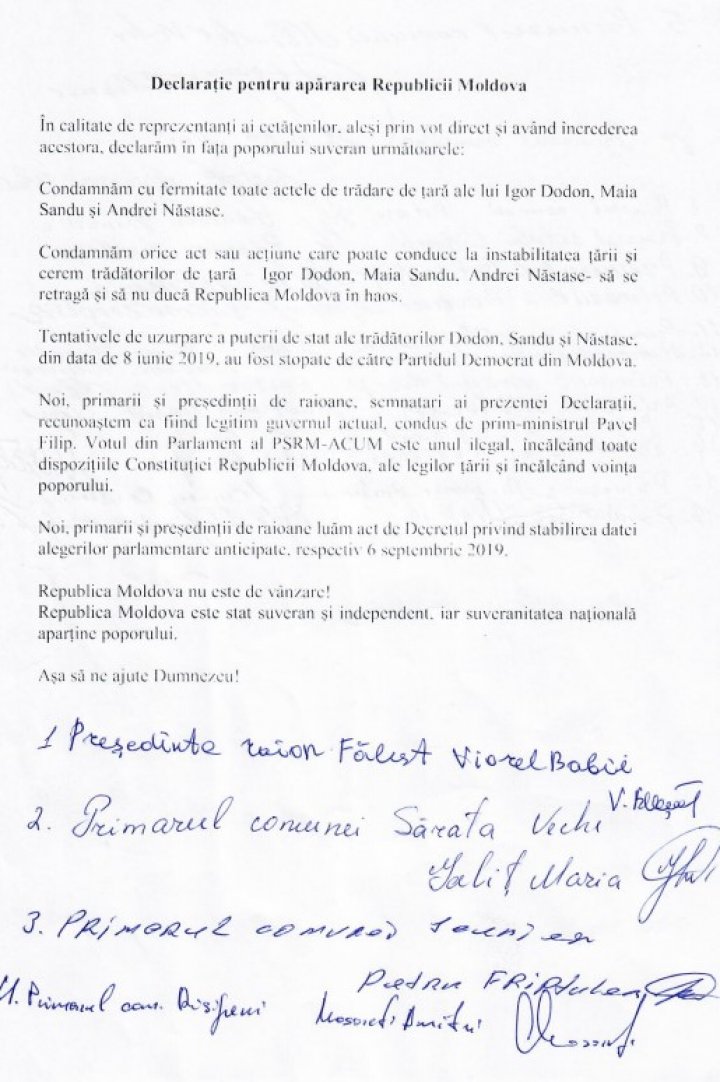 Declarație pentru apărarea Republicii Moldova
În calitate de reprezentanți ai cetățenilor, aleși prin vot direct și având încrederea
acestora, declarăm în fața poporului suveran următoarele:
Condamnăm cu fermitate toate actele de trădare de țară ale lui Igor Dodon, Maia
Sandu și Andrei Năstase.
Condamnăm orice act sau acțiune care poate conduce la instabilitatea țării și
cerem trădătorilor de țară Igor Dodon, Maia Sandu, Andrei Năstase- să se
retragă și să nu ducă Republica Moldova în haos.
Tentativele de uzurpare a puterii de stat ale trădătorilor Dodon, Sandu și Năstase,
din data de 8 iunie 2019, au fost stopate de către Partidul Democrat din Moldova.
Noi, primarii și președinții de raioane, semnatari ai prezentei Declarații,
recunoaștem ca fiind legitim guvernul actual, condus de prim-ministrul Pavel
Filip. Votul din Parlament al PSRM-ACUM este unul ilegal, încălcând toate
dispozițiile Constituției Republicii Moldova, ale legilor țării și încălcând voința
poporului.
Noi, primarii și președinții de raioane luăm act de Decretul privind stabilirea datei
alegerilor parlamentare anticipate, respectiv 6 septembrie 2019.
Republica Moldova nu este de vânzare!
Republica Moldova este stat suveran și independent, iar suveranitatea națională
aparține poporului.
Așa să ne ajute Dumnezeu!
1 Președinte raion Fălești Viorel Babii
2. Primarul comunei Sărata Veche
Galiț Maria
3. Primarul comunei
Petru
4. Primarul com. Risipeni Dumitru